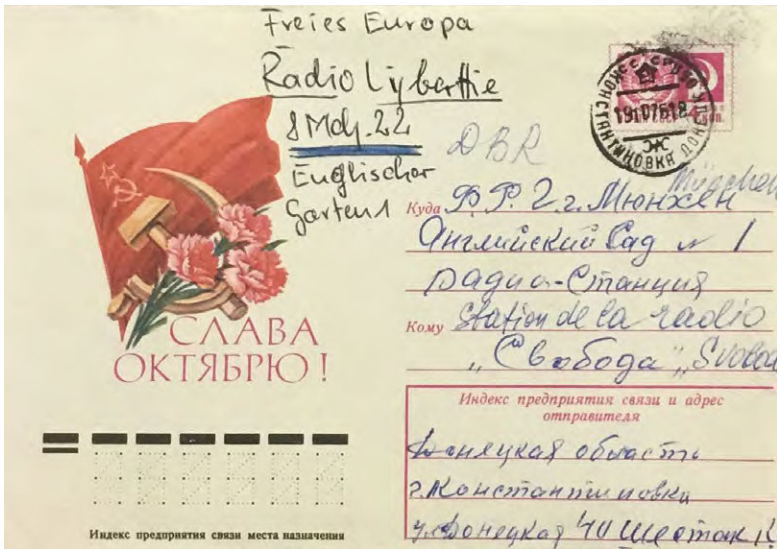 Freies Europa
Radio Lyberttie
8 Mch. 22
Englischer
Garten 1
DBR
München
СЛАВА
ОКТЯБРЮ!
Куда Ф.Р.Г. г. Мюнхен
Английский Сад № 1
радио-Станция
Кому Station de la radio
„Свобода" „Svoboda
Индекс предприятия связи и адрес
отправителя
Донецкая область
г. Константиновка
ул. Донецкая 40
Индекс предприятия связи места назначения